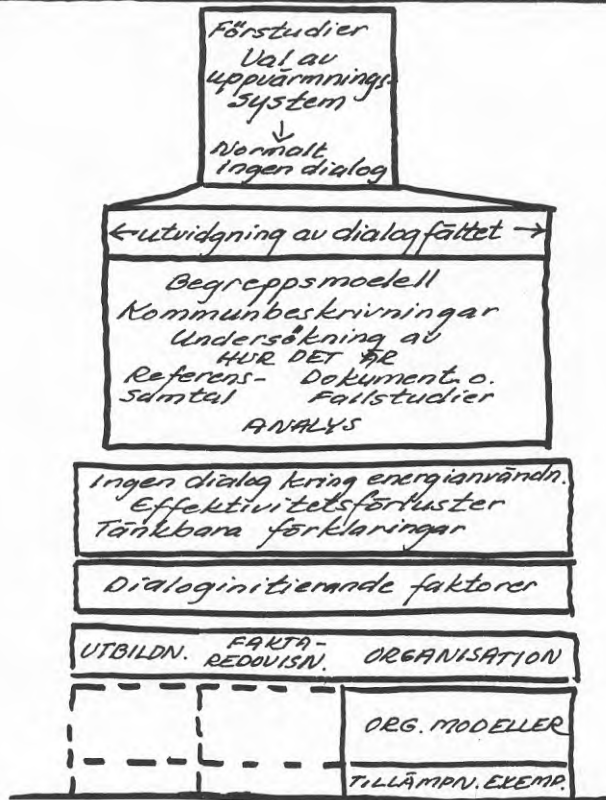 Förstudier
Val av
uppvärmnings-
system
↓
Normalt
ingen dialog
← utvidgning av dialogfältet →
Begreppsmodell
Kommunbeskrivningar
Undersökning av
HUR DET ÄR
Referens- Dokument. o.
samtal Fallstudier
ANALYS
Ingen dialog kring energianvändn.
Effektivitetsförluster
Tänkbara förklaringar
Dialoginitierande faktorer
UTBILDN. FAKTA-REDOVISN. ORGANISATION
ORG. MODELLER
TILLÄMPN. EXEMP.